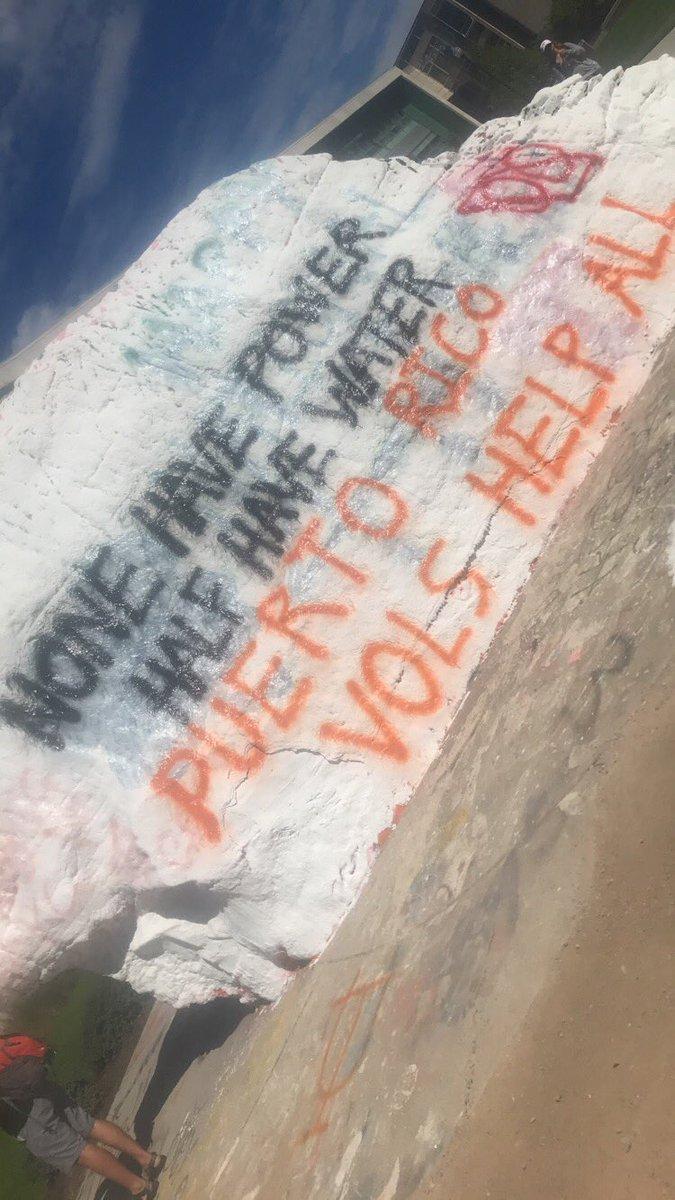 NONE HAVE POWER
HALF HAVE WATER
PUERTO RICO
VOLS HELP ALL